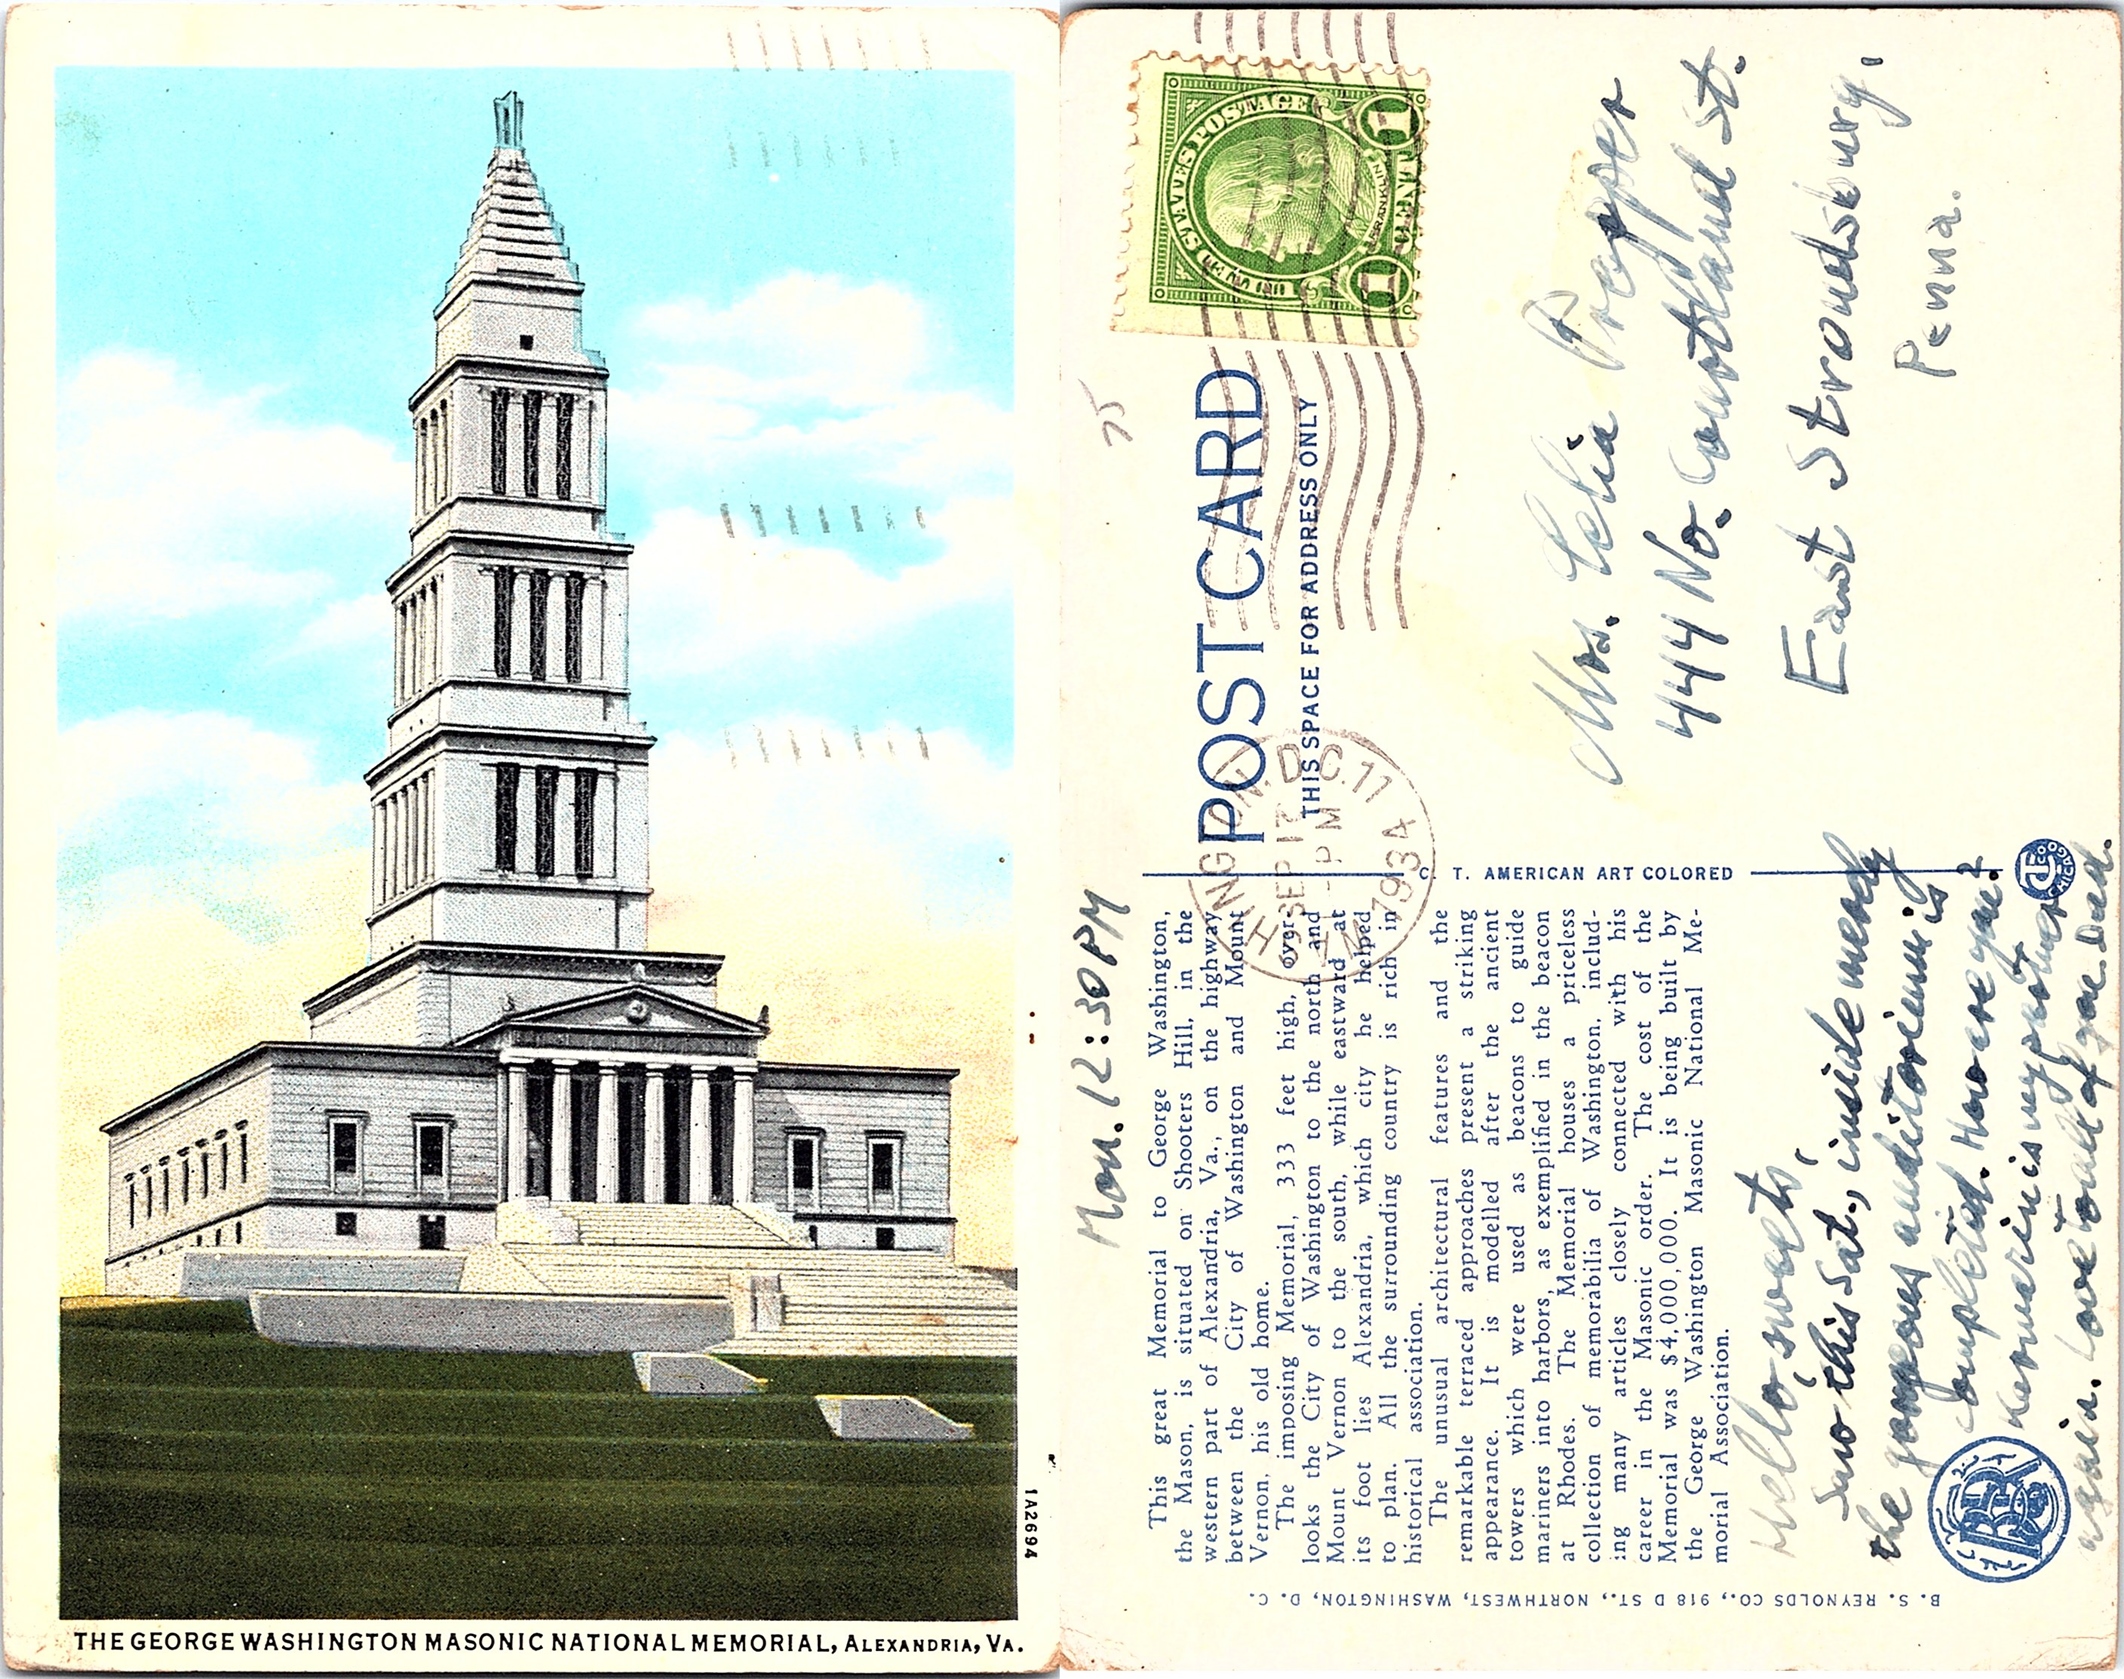 THE GEORGE WASHINGTON MASONIC NATIONAL MEMORIAL, ALEXANDRIA, VA.
1A2694
UNITED STATES POSTAGE
FRANKLIN
1 CENT 1
75
POST CARD
THIS SPACE FOR ADDRESS ONLY
WASHINGTON, D.C. 11
SEP 17
PM
1934
Mrs. Celia
444 No. Courtland St.
East Stroudsburg,
Penna.
C. T. AMERICAN ART COLORED
CHICAGO
Mon. 12:30 PM
This great Memorial to George Washington,
the Mason, is situated on Shooters Hill, in the
western part of Alexandria, Va., on the highway
between the City of Washington and Mount
Vernon, his old home.
The imposing Memorial, 333 feet high, over-
looks the City of Washington to the north and
Mount Vernon to the south, while eastward at
its foot lies Alexandria, which city he helped
to plan. All the surrounding country is rich in
historical association.
The unusual architectural features and the
remarkable terraced approaches present a striking
appearance. It is modelled after the ancient
towers which were used as beacons to guide
mariners into harbors, as exemplified in the beacon
at Rhodes. The Memorial houses a priceless
collection of memorabilia of Washington, includ-
ing many articles closely connected with his
career in the Masonic order. The cost of the
Memorial was $4,000,000. It is being built by
the George Washington Masonic National Me-
morial Association.
Hello sweets,
Saw this Sat., inside merely
the gorgeous auditorium is
completed. How are you?
is very
again. Love to all of you. Dad.
B. S. REYNOLDS CO., 918 D ST., NORTHWEST, WASHINGTON, D. C.